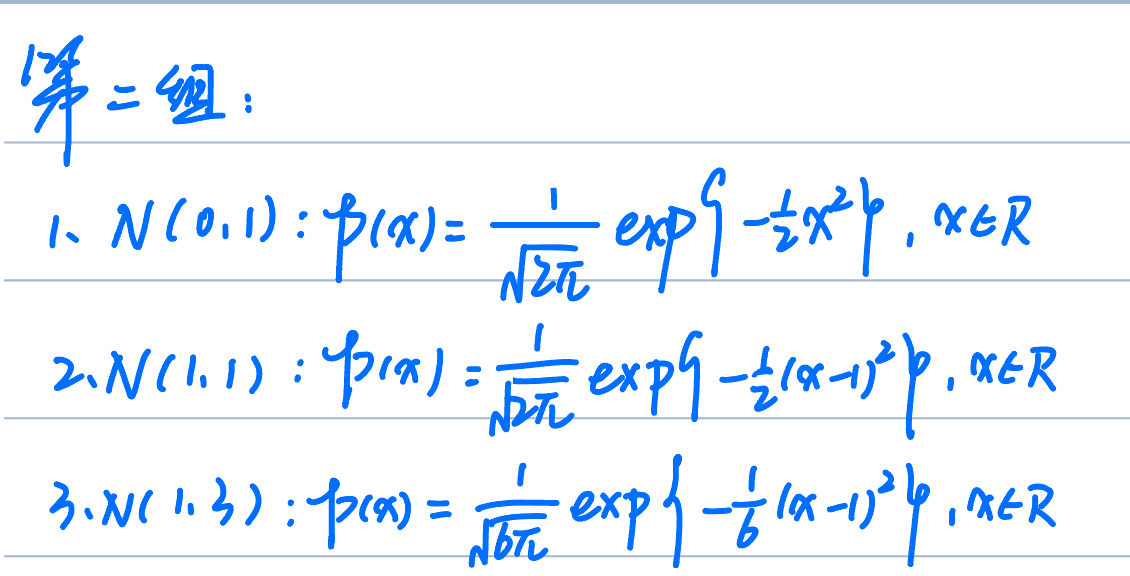 第二组：
1、N(0,1)：p(x)= \frac{1}{\sqrt{2π}} exp{-\frac{1}{2}x²}，x∈R
2、N(1,1)：p(x)= \frac{1}{\sqrt{2π}} exp{-\frac{1}{2}(x-1)²}，x∈R
3、N(1,3)：p(x)= \frac{1}{\sqrt{6π}} exp{-\frac{1}{6}(x-1)²}，x∈R